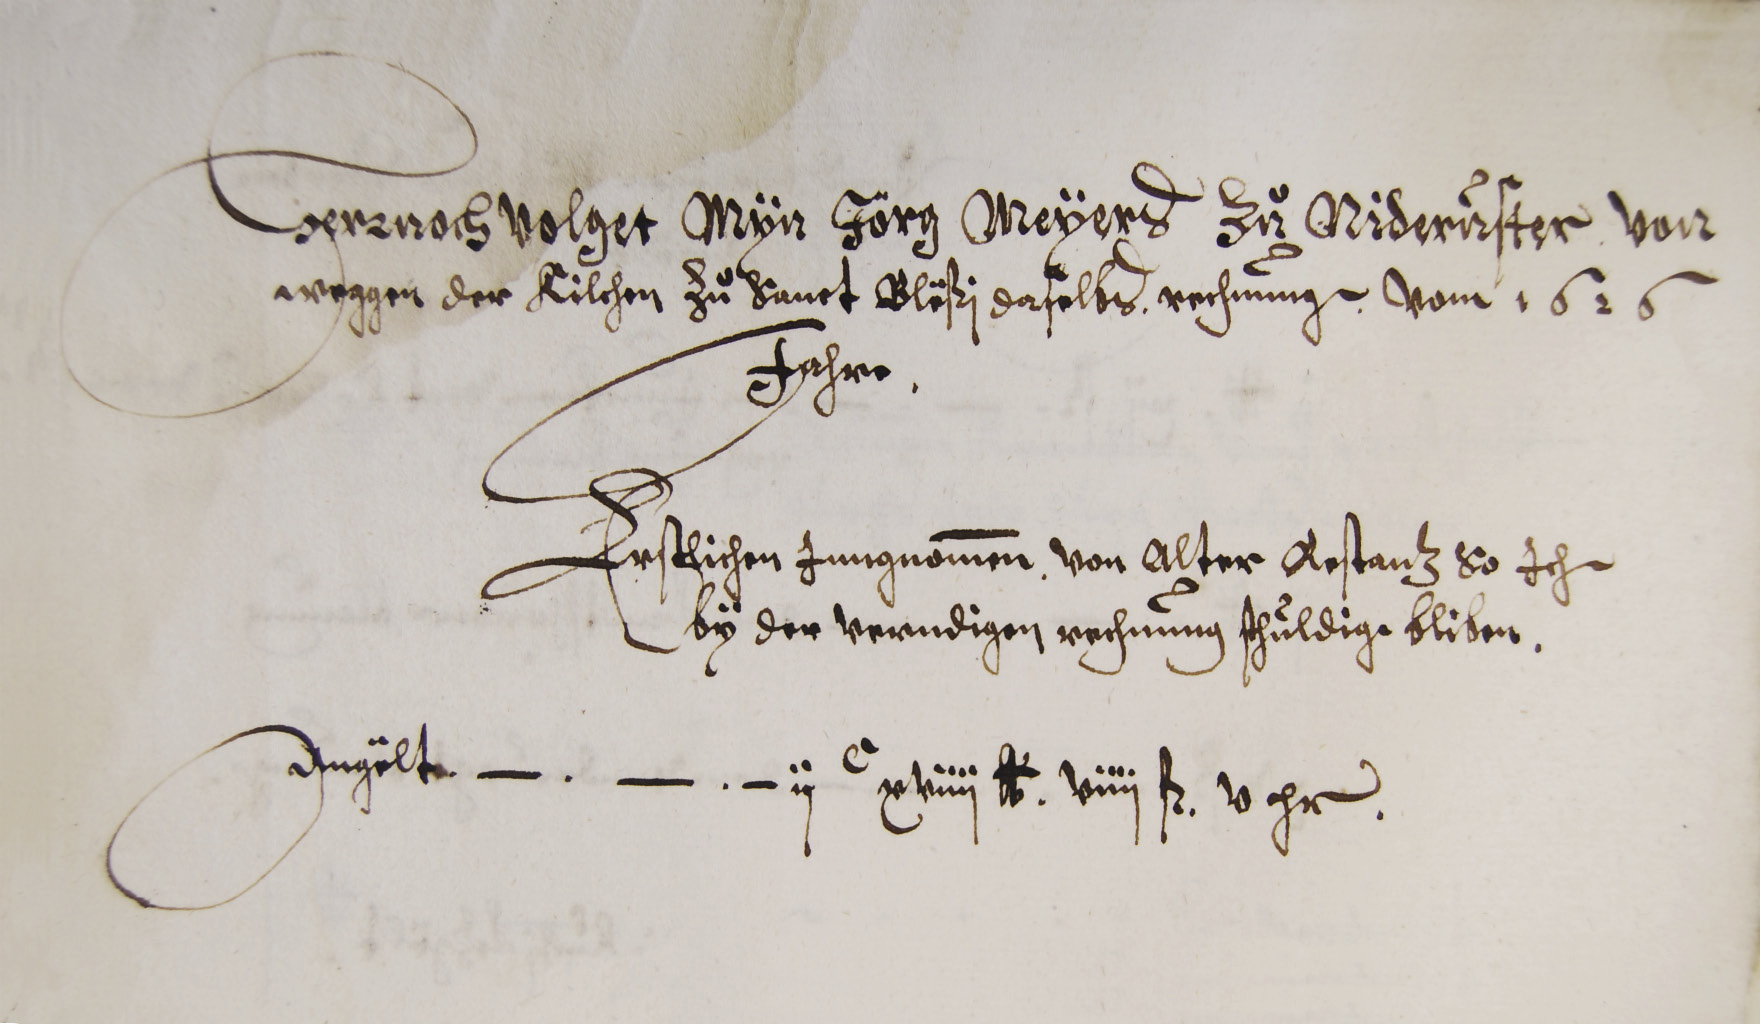 Hernnoch volget Mÿn Jörg Meÿers Zů Niderůster von
weggen der Kilchen Zů Sanct Bläsÿ daselbs. rechnung. Vom 1626
Jahre.
Erstlichen Inngnomen. von Alter Restantz So Ich
bÿ der verndigen rechnung schuldig bliben.
Angëlt. — . — . – ij C xviiij ℔. viiij ß. v hr.